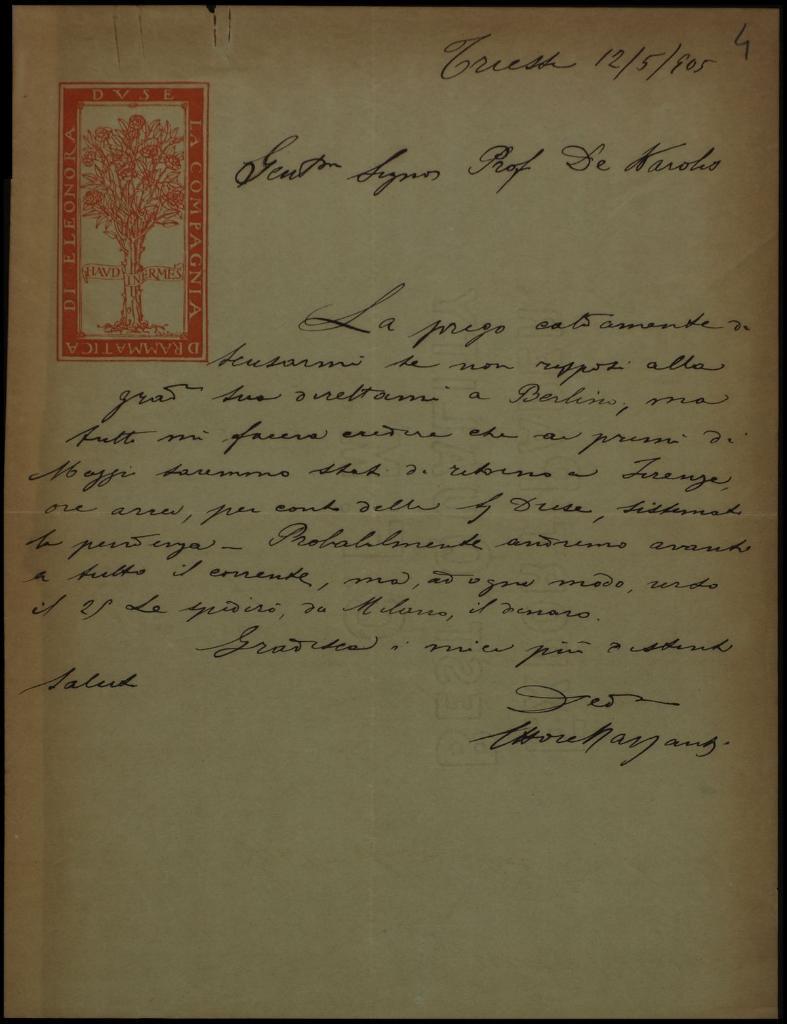 4
Trieste 12/5/905
DI ELEONORA DVSE LA COMPAGNIA DRAMMATICA
HAVD INERMES
Gentmo Signor Prof De Karolis
La prego caldamente di
scusarmi se non risposi alla
grad sua direttami a Berlino, ma
tutto mi faceva credere che ai primi di
Maggio saremmo stati di ritorno a Firenze,
ove avrei, per conto della Sg Duse, sistemato
la pendenza — Probabilmente andremo avanti
a tutto il corrente, ma, ad ogni modo, verso
il 25 Le spedirò, da Milano, il denaro.
Gradisca i miei più distinti
saluti
Devmo
Ettore Mazzanti